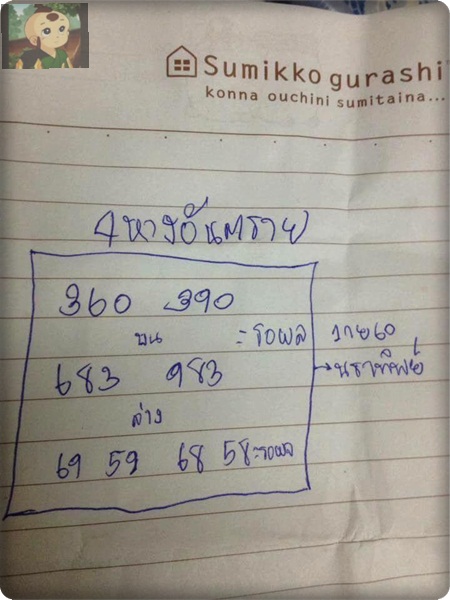 Sumikko gurashi
konna ouchini sumitaina...
4หางอันตราย
360 390
บน =รอผล
683 983
ล่าง
69 59 68 58=รอผล
→นราทิพย์